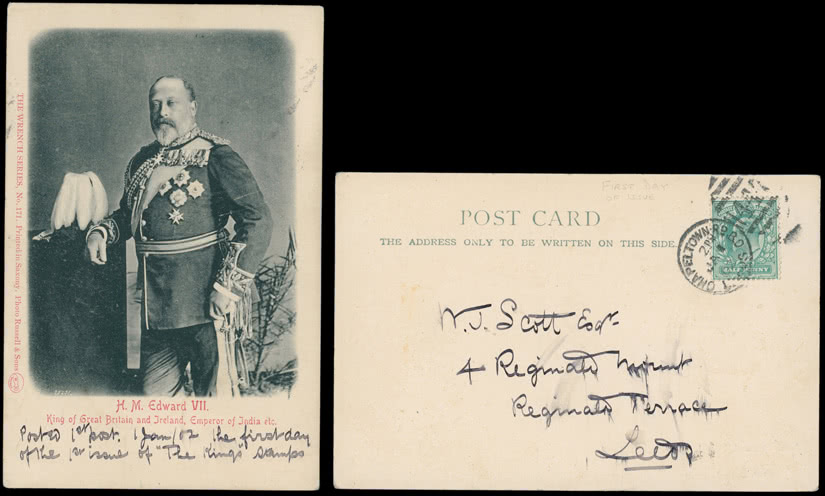 THE WRENCH SERIES, No. 171. Printed in Saxony. Photo Russell & Sons
H. M. Edward VII.
King of Great Britain and Ireland, Emperor of India etc.
Posted 1st post. 1 Jan/02 the first day
of the 1st issue of "The Kings" Stamps
FIRST DAY
OF ISSUE
POST CARD
THE ADDRESS ONLY TO BE WRITTEN ON THIS SIDE.
CHAPELTOWN-RD
HALF PENNY
W. J. Scott Esqr
4 Reginald Mount
Reginald Terrace
Leeds